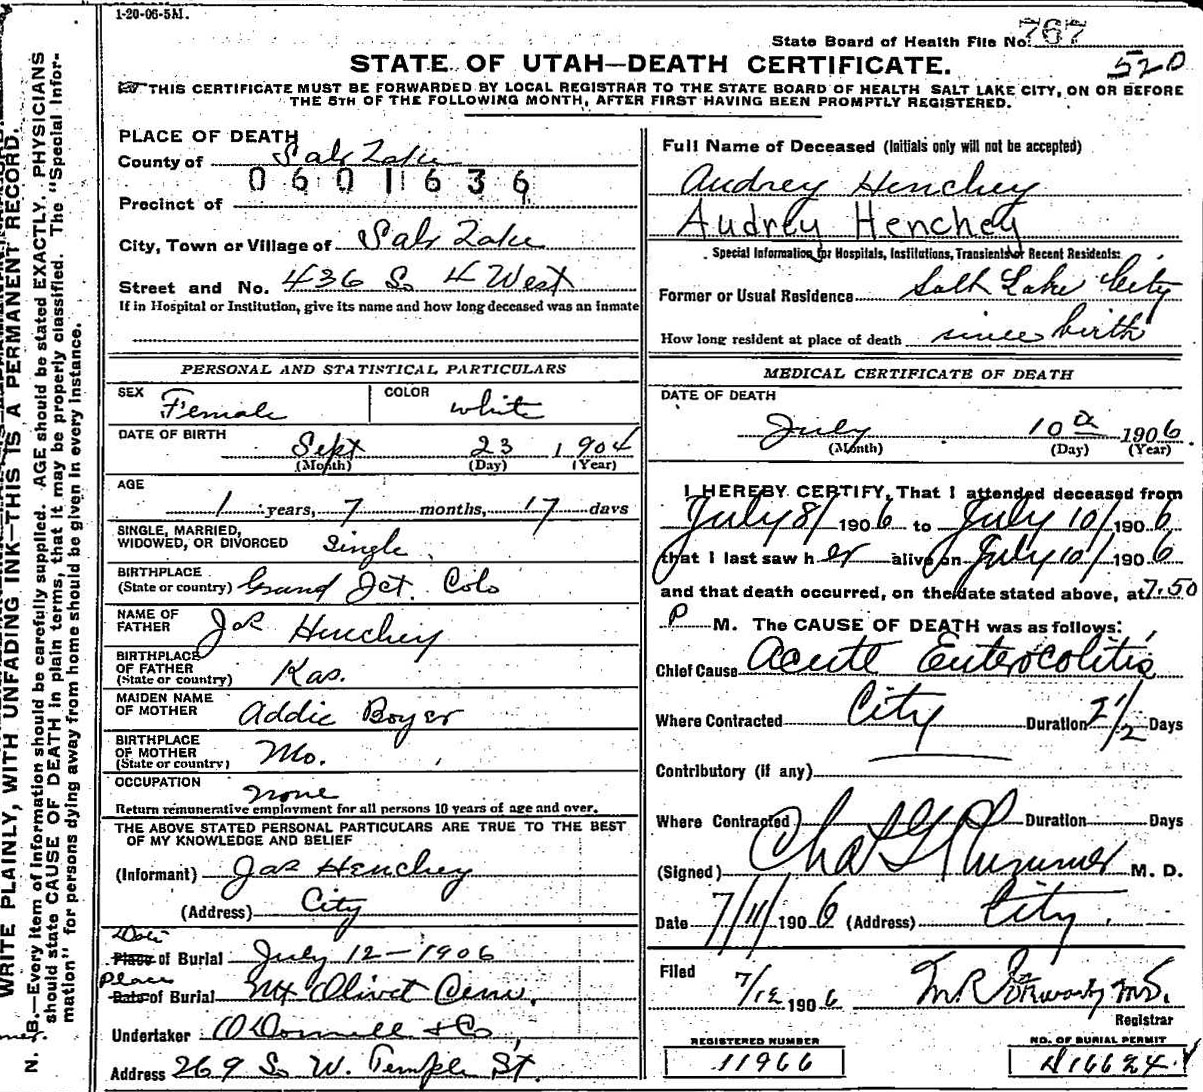 1-20-06-5M.
State Board of Health File No. 767
520
STATE OF UTAH—DEATH CERTIFICATE.
THIS CERTIFICATE MUST BE FORWARDED BY LOCAL REGISTRAR TO THE STATE BOARD OF HEALTH SALT LAKE CITY, ON OR BEFORE
THE 5TH OF THE FOLLOWING MONTH, AFTER FIRST HAVING BEEN PROMPTLY REGISTERED.
WRITE PLAINLY, WITH UNFADING INK—THIS IS A PERMANENT RECORD.
N. B.—Every item of information should be carefully supplied. AGE should be stated EXACTLY. PHYSICIANS
should state CAUSE OF DEATH in plain terms, that it may be properly classified. The "Special Infor-
mation" for persons dying away from home should be given in every instance.
PLACE OF DEATH
County of Salt Lake
0601636
Precinct of
City, Town or Village of Salt Lake
Street and No. 436 So 4 West
If in Hospital or Institution, give its name and how long deceased was an inmate
PERSONAL AND STATISTICAL PARTICULARS
SEX Female COLOR white
DATE OF BIRTH Sept 23 1904
(Month) (Day) (Year)
AGE
1 years, 7 months, 17 days
SINGLE, MARRIED,
WIDOWED, OR DIVORCED Single
BIRTHPLACE
(State or country) Grand Jct. Colo
NAME OF
FATHER Jas Henchey
BIRTHPLACE
OF FATHER
(State or country) Kas.
MAIDEN NAME
OF MOTHER Addie Boyer
BIRTHPLACE
OF MOTHER
(State or country) Mo.
OCCUPATION none
Return remunerative employment for all persons 10 years of age and over.
THE ABOVE STATED PERSONAL PARTICULARS ARE TRUE TO THE BEST
OF MY KNOWLEDGE AND BELIEF
(Informant) Jas Henchey
(Address) City
Date
Place of Burial July 12-1906
Place
Date of Burial Mt Olivet Cem.
Undertaker O'Donnell & Co
Address 269 So W. Temple St.
Full Name of Deceased (Initials only will not be accepted)
Audrey Henchey
Audrey Henchey
Special Information for Hospitals, Institutions, Transients or Recent Residents:
Former or Usual Residence Salt Lake City
How long resident at place of death since birth
MEDICAL CERTIFICATE OF DEATH
DATE OF DEATH
July 10th 1906.
(Month) (Day) (Year)
I HEREBY CERTIFY, That I attended deceased from
July 8/ 1906 to July 10/ 1906
that I last saw her alive on July 10/ 1906
and that death occurred, on the date stated above, at 7.50
P M. The CAUSE OF DEATH was as follows:
Chief Cause Acute Enterocolitis
Where Contracted City Duration 2 1/2 Days
Contributory (if any)
Where Contracted Duration Days
(Signed) Chas G Plummer M. D.
Date 7/11/ 1906 (Address) City.
Filed 7/12 1906
Registrar
REGISTERED NUMBER
11966
NO. OF BURIAL PERMIT
H16624